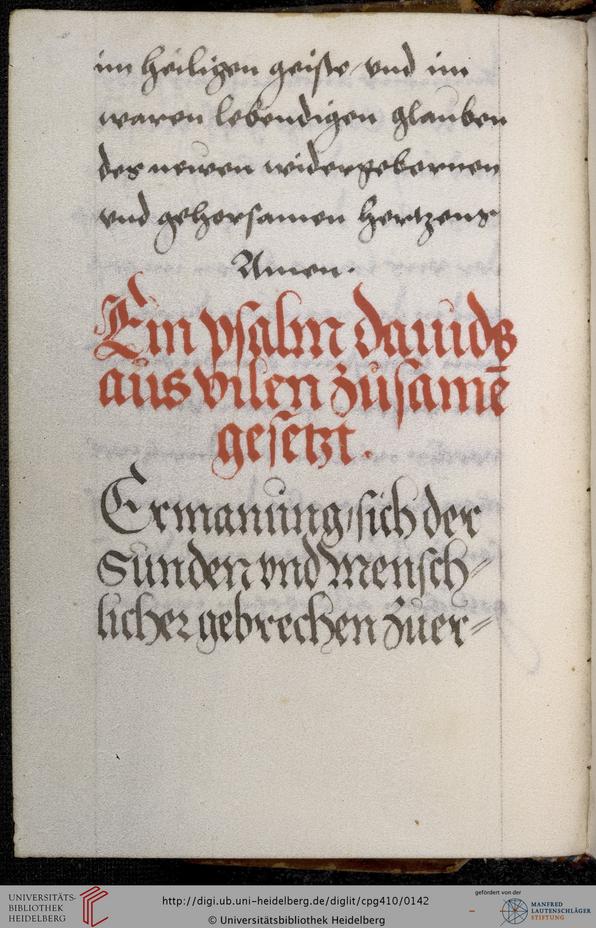 im heiligen geiste / vnd im
waren lebendigen glauben
des newen widergebornen
vnd gehorsamen hertzens
Amen.
Ein psalm dauids
aus vilen zusamē
gesetzt.
Ermanung / sich der
Sunden vnd mensch⸗
licher gebrechen zuer⸗
UNIVERSITÄTS-
BIBLIOTHEK
HEIDELBERG
http://digi.ub.uni-heidelberg.de/diglit/cpg410/0142
© Universitätsbibliothek Heidelberg
gefördert von der
MANFRED
LAUTENSCHLÄGER
STIFTUNG